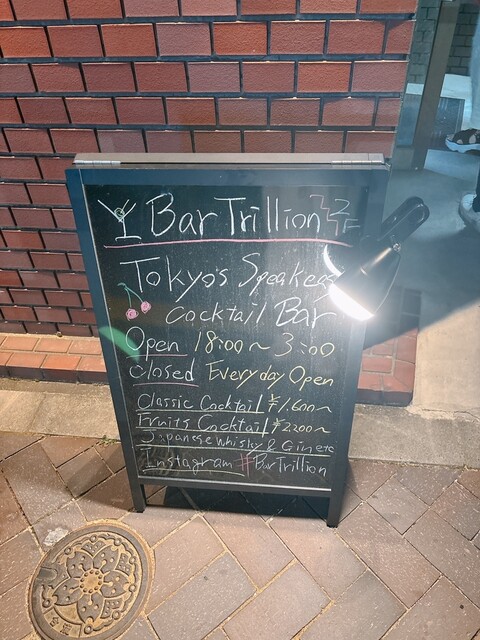 Bar Trillion 2F
Tokyo's Speakeasy
Cocktail Bar
Open 18:00~3:00
Closed Everyday Open
Classic Cocktail ¥1,600~
Fruits Cocktail ¥2,200~
Japanese Whisky & Gin etc
Instagram #BarTrillion